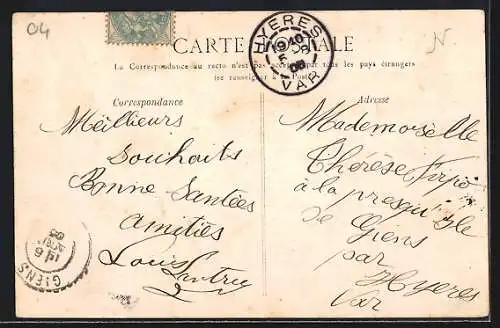 04
N
CARTE POSTALE
La Correspondance au recto n'est pas acceptée par tous les pays étrangers
(se renseigner à la Poste)
HYERES
VAR
Correspondance
Meillieurs
Souhaits
Bonne Santées
amitiés
Louis
GIENS
Adresse
Mademoiselle
Thérèse
à la presqu'isle
de Giens
par
Hyeres
Var